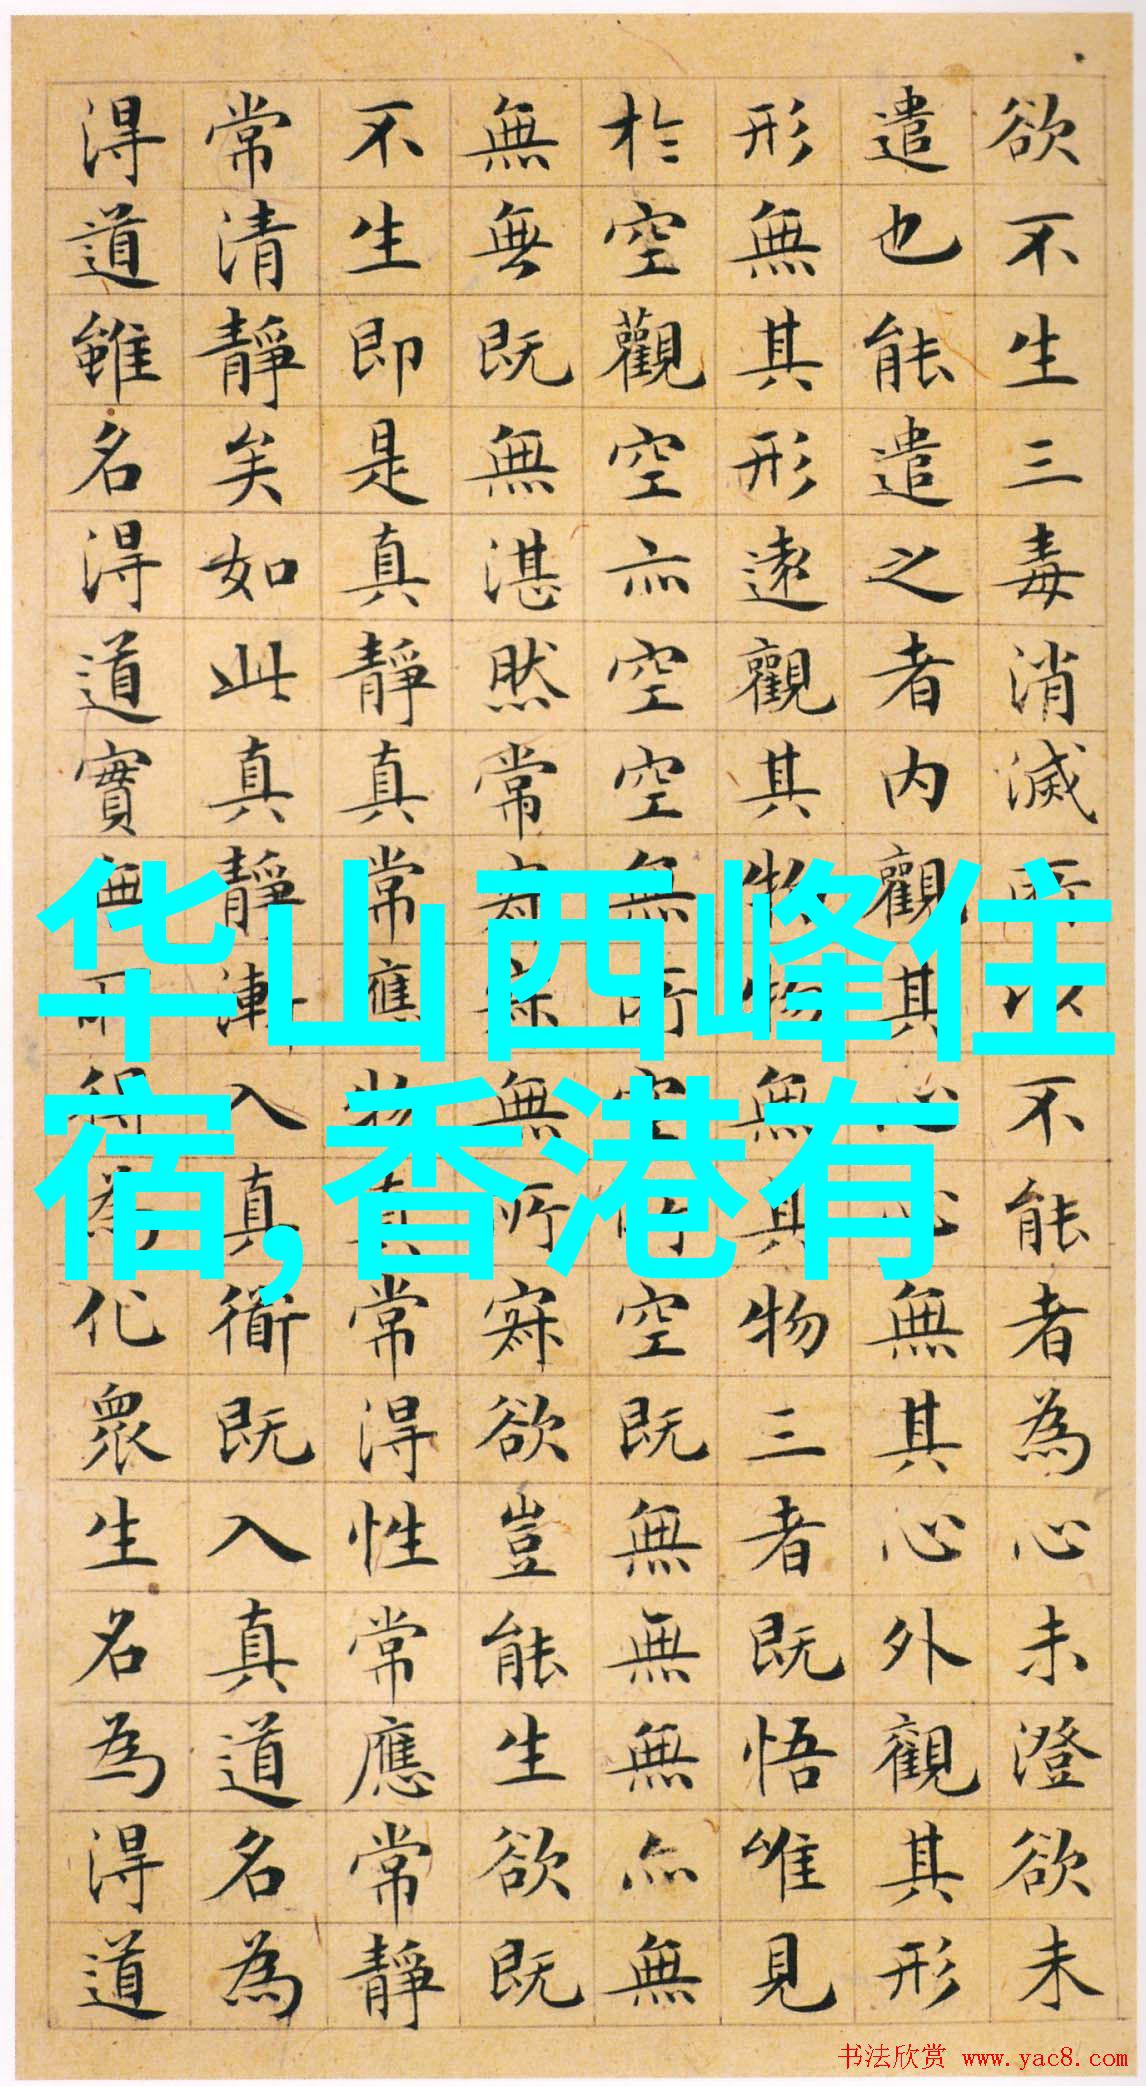 欲不生三毒消滅所以不能者為心未澄欲未
遣也能遣之者内觀其心心無其心外觀其形
形無其形遠觀其物物無其物三者既悟唯見
於空觀空亦空空無所空所空既無無無亦無
無無既無湛然常寂寂無所寂欲豈能生欲既
不生即是真靜真常應物真常得性常應常靜
常清靜矣如此真靜漸入真衜既入真道名為
得道雖名得道實無所得為化眾生名為得道
华山西峰住
宿,香港有
书法欣赏 www.yac8.com